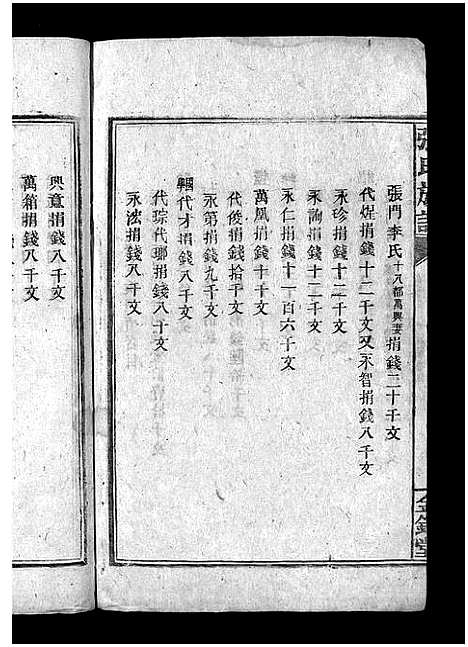 張氏族譜
張門李氏十八都萬興妻捐錢二十千文
代焜捐錢十二千文又永智捐錢八千文
永珍捐錢十二千文
永詢捐錢十二千文
永仁捐錢十一百六千文
萬鳳捐錢十千文
代俊捐錢拾千文
永第捐錢九千文
代才捐錢八千文
代琮代瑯捐錢八千文
永浤捐錢八千文
興意捐錢八千文
萬箱捐錢八千文